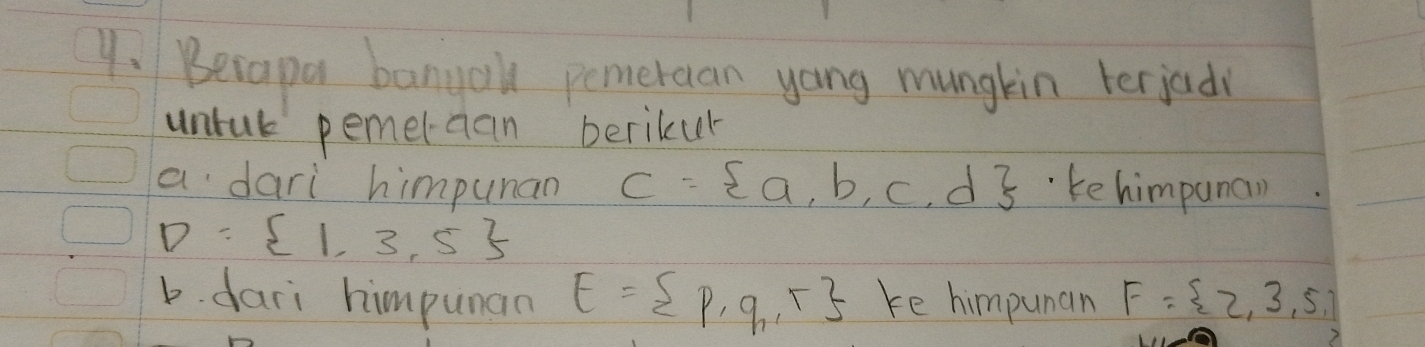 4. Berapa banyak pemetaan yang mungkin terjadi
untuk pemetaan berikut
a. dari himpunan C = {a, b, c, d} ke himpunan
D = {1, 3, 5}
b. dari himpunan E = {p, q, r} ke himpunan F = {2, 3, 5,